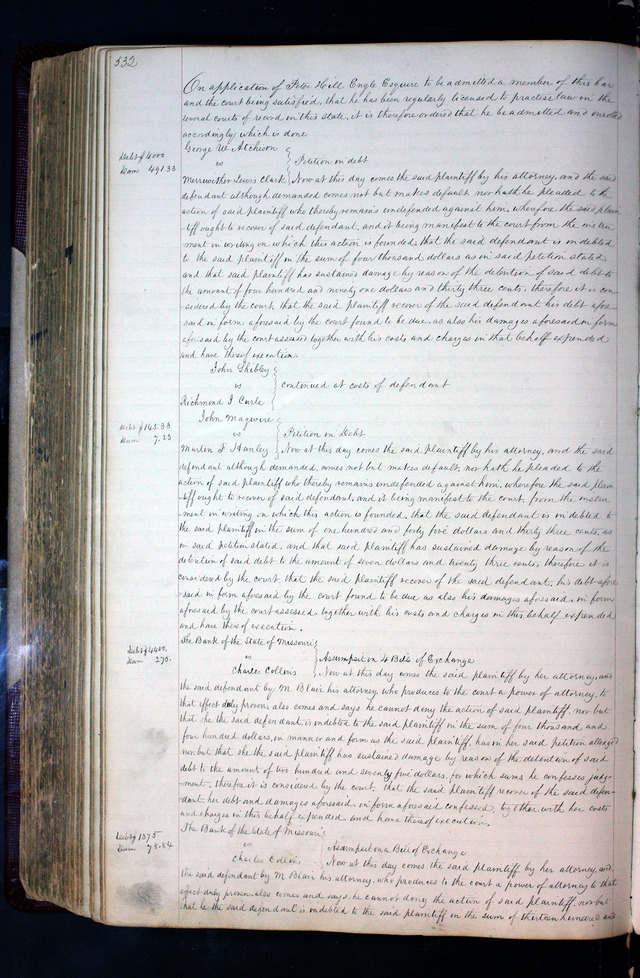 532
On application of Peter Hill Engle Esquire to be admitted a member of this bar
and the court being satisfied, that he has been regularly licensed to practise law in the
several courts of record in this state, it is therefore ordered that he be admitted and enrolled
accordingly which is done
George W Atcheson
Debt $4000 vs Petition in debt
Dam 491.33
Merriwether Lewis Clark Now at this day comes the said plaintiff by his attorney, and the said
defendant although demanded comes not but makes default nor hath he pleaded to the
action of said plaintiff who thereby remains undefended against him, wherefore the said plain
tiff ought to recover of said defendant, and it being manifest to the court from the instru
ment in writing on which this action is founded, that the said defendant is indebted
to the said plaintiff in the sum of four thousand dollars as in said petition stated
and that said plaintiff has sustained damage by reason of the detention of said debt to
the amount of four hundred and ninety one dollars and thirty three cents, therefore it is con
sidered by the court, that the said plaintiff recover of the said defendant his debt afore
said in form aforesaid by the court found to be due, as also his damages aforesaid in form
aforesaid by the court assessed together with his costs and charges in that behalf expended
and have thereof execution.
John Shibley
vs continued at costs of defendant
Richmond J Curle
John Maguire
Debt $145.33 vs Petition in Debt
Dam 7.23
Marden F Hanley Now at this day comes the said plaintiff by his attorney, and the said
defendant although demanded, comes not but makes default, nor hath he pleaded to the
action of said plaintiff who thereby remains undefended against him, wherefore the said plain
tiff ought to recover of said defendant, and it being manifest to the court, from the instru
ment in writing on which this action is founded, that the said defendant is indebted to
the said plaintiff in the sum of one hundred and forty five dollars and thirty three cents, as
in said petition stated, and that said plaintiff has sustained damage by reason of the
detention of said debt to the amount of seven dollars and twenty three cents, therefore it is
considered by the court that the said plaintiff recover of the said defendant, his debt afore
said in form aforesaid by the court found to be due as also his damages aforesaid, in form
aforesaid by the court assessed, together with his costs and charges in this behalf expended
and have thereof execution.
The Bank of the State of Missouri
Debt $4400, vs Assumpsit on 4 Bills of Exchange
Dam 275.
Charles Collins Now at this day comes the said plaintiff by her attorney, and
the said defendant by M. Blair his attorney who produces to the court a power of attorney, to
that effect duly proven, also comes and says he cannot deny the action of said plaintiff, nor but
that he the said defendant is indebted to the said plaintiff in the sum of four thousand and
four hundred dollars, in manner and form as the said plaintiff, has in her said petition alleged
nor but that she the said plaintiff has sustained damage by reason of the detention of said
debt to the amount of two hundred and seventy five dollars, for which sums he confesses judg-
ment, therefore it is considered by the court, that the said plaintiff recover of the said defen-
dant, her debt and damages aforesaid in form aforesaid confessed, together with her costs
and charges in this behalf expended and have thereof execution.
The Bank of the State of Missouri
Debt $1375 vs Assumpsit on a Bill of Exchange
Dam 78.84
Charles Collins Now at this day comes the said plaintiff by her attorney, and
the said defendant by M. Blair his attorney, who produces to the court a power of attorney to that
effect duly proven, also comes and says, he cannot deny the action of said plaintiff, nor but
that he the said defendant is indebted to the said plaintiff in the sum of thirteen hundred and